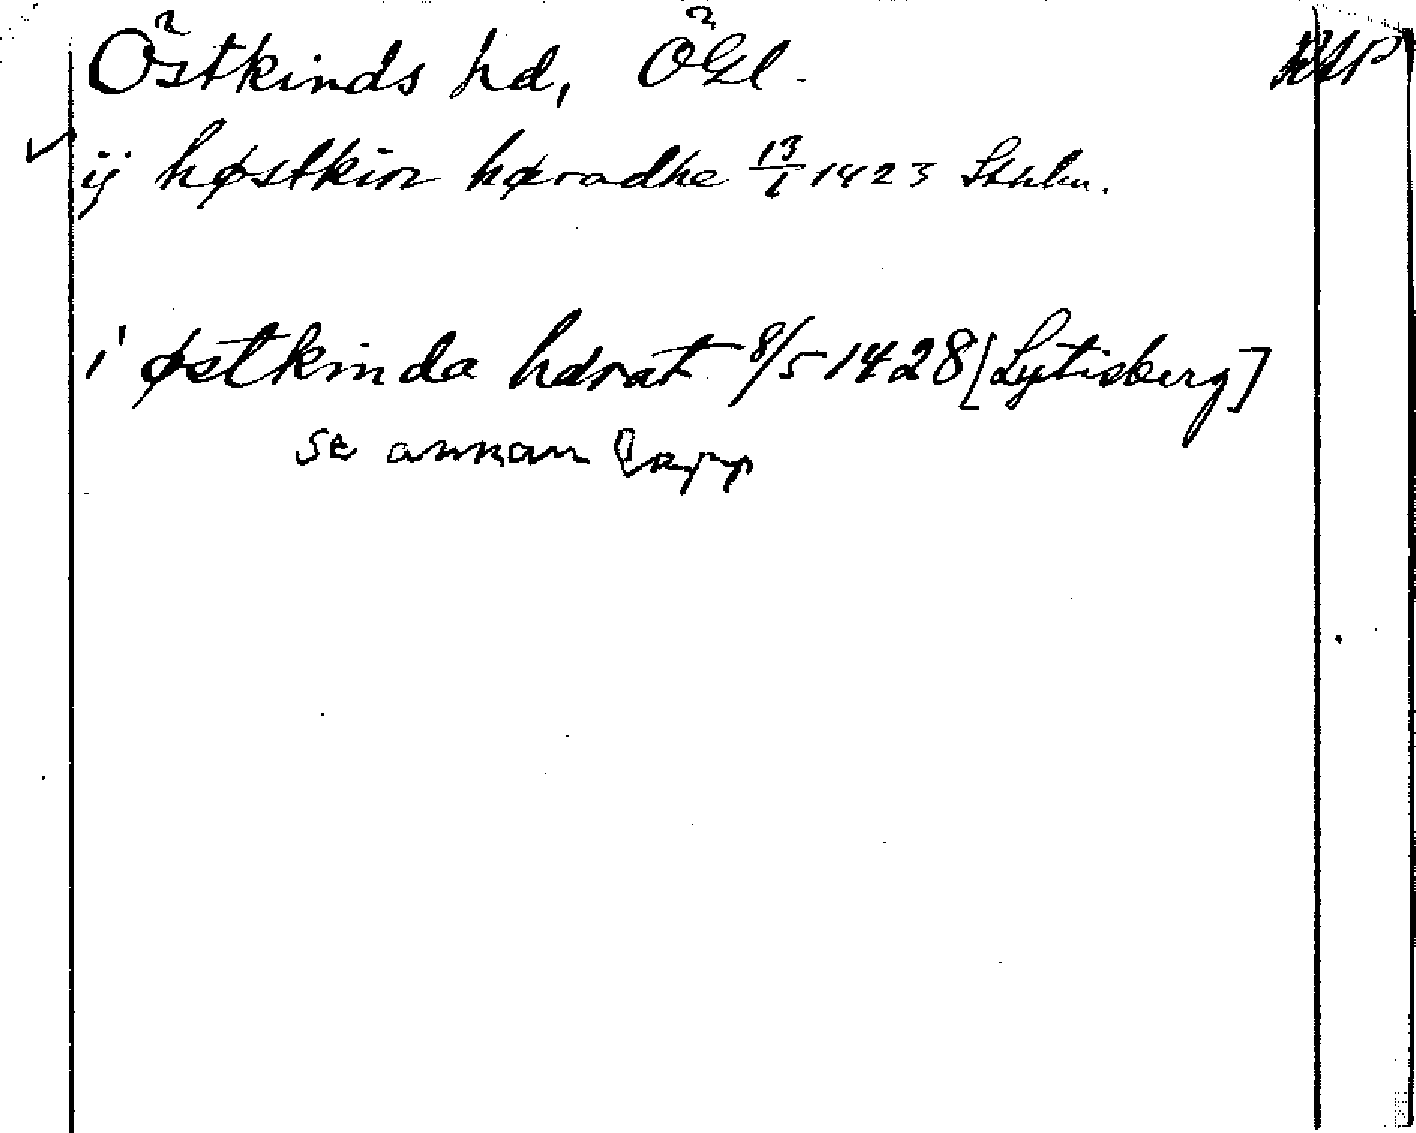 Östkinds hd, ÖGl.
ij høstkin høradhe 13/1 1423 Sthlm.
i østkinda hærat 8/5 1428 [Lytisberg]
se annan lapp